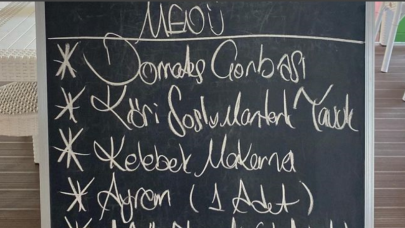 MENÜ
* Domates Çorbası
* Köri Soslu Mantarlı Tavuk
* Kelebek Makarna
* Ayran ( 1 Adet )